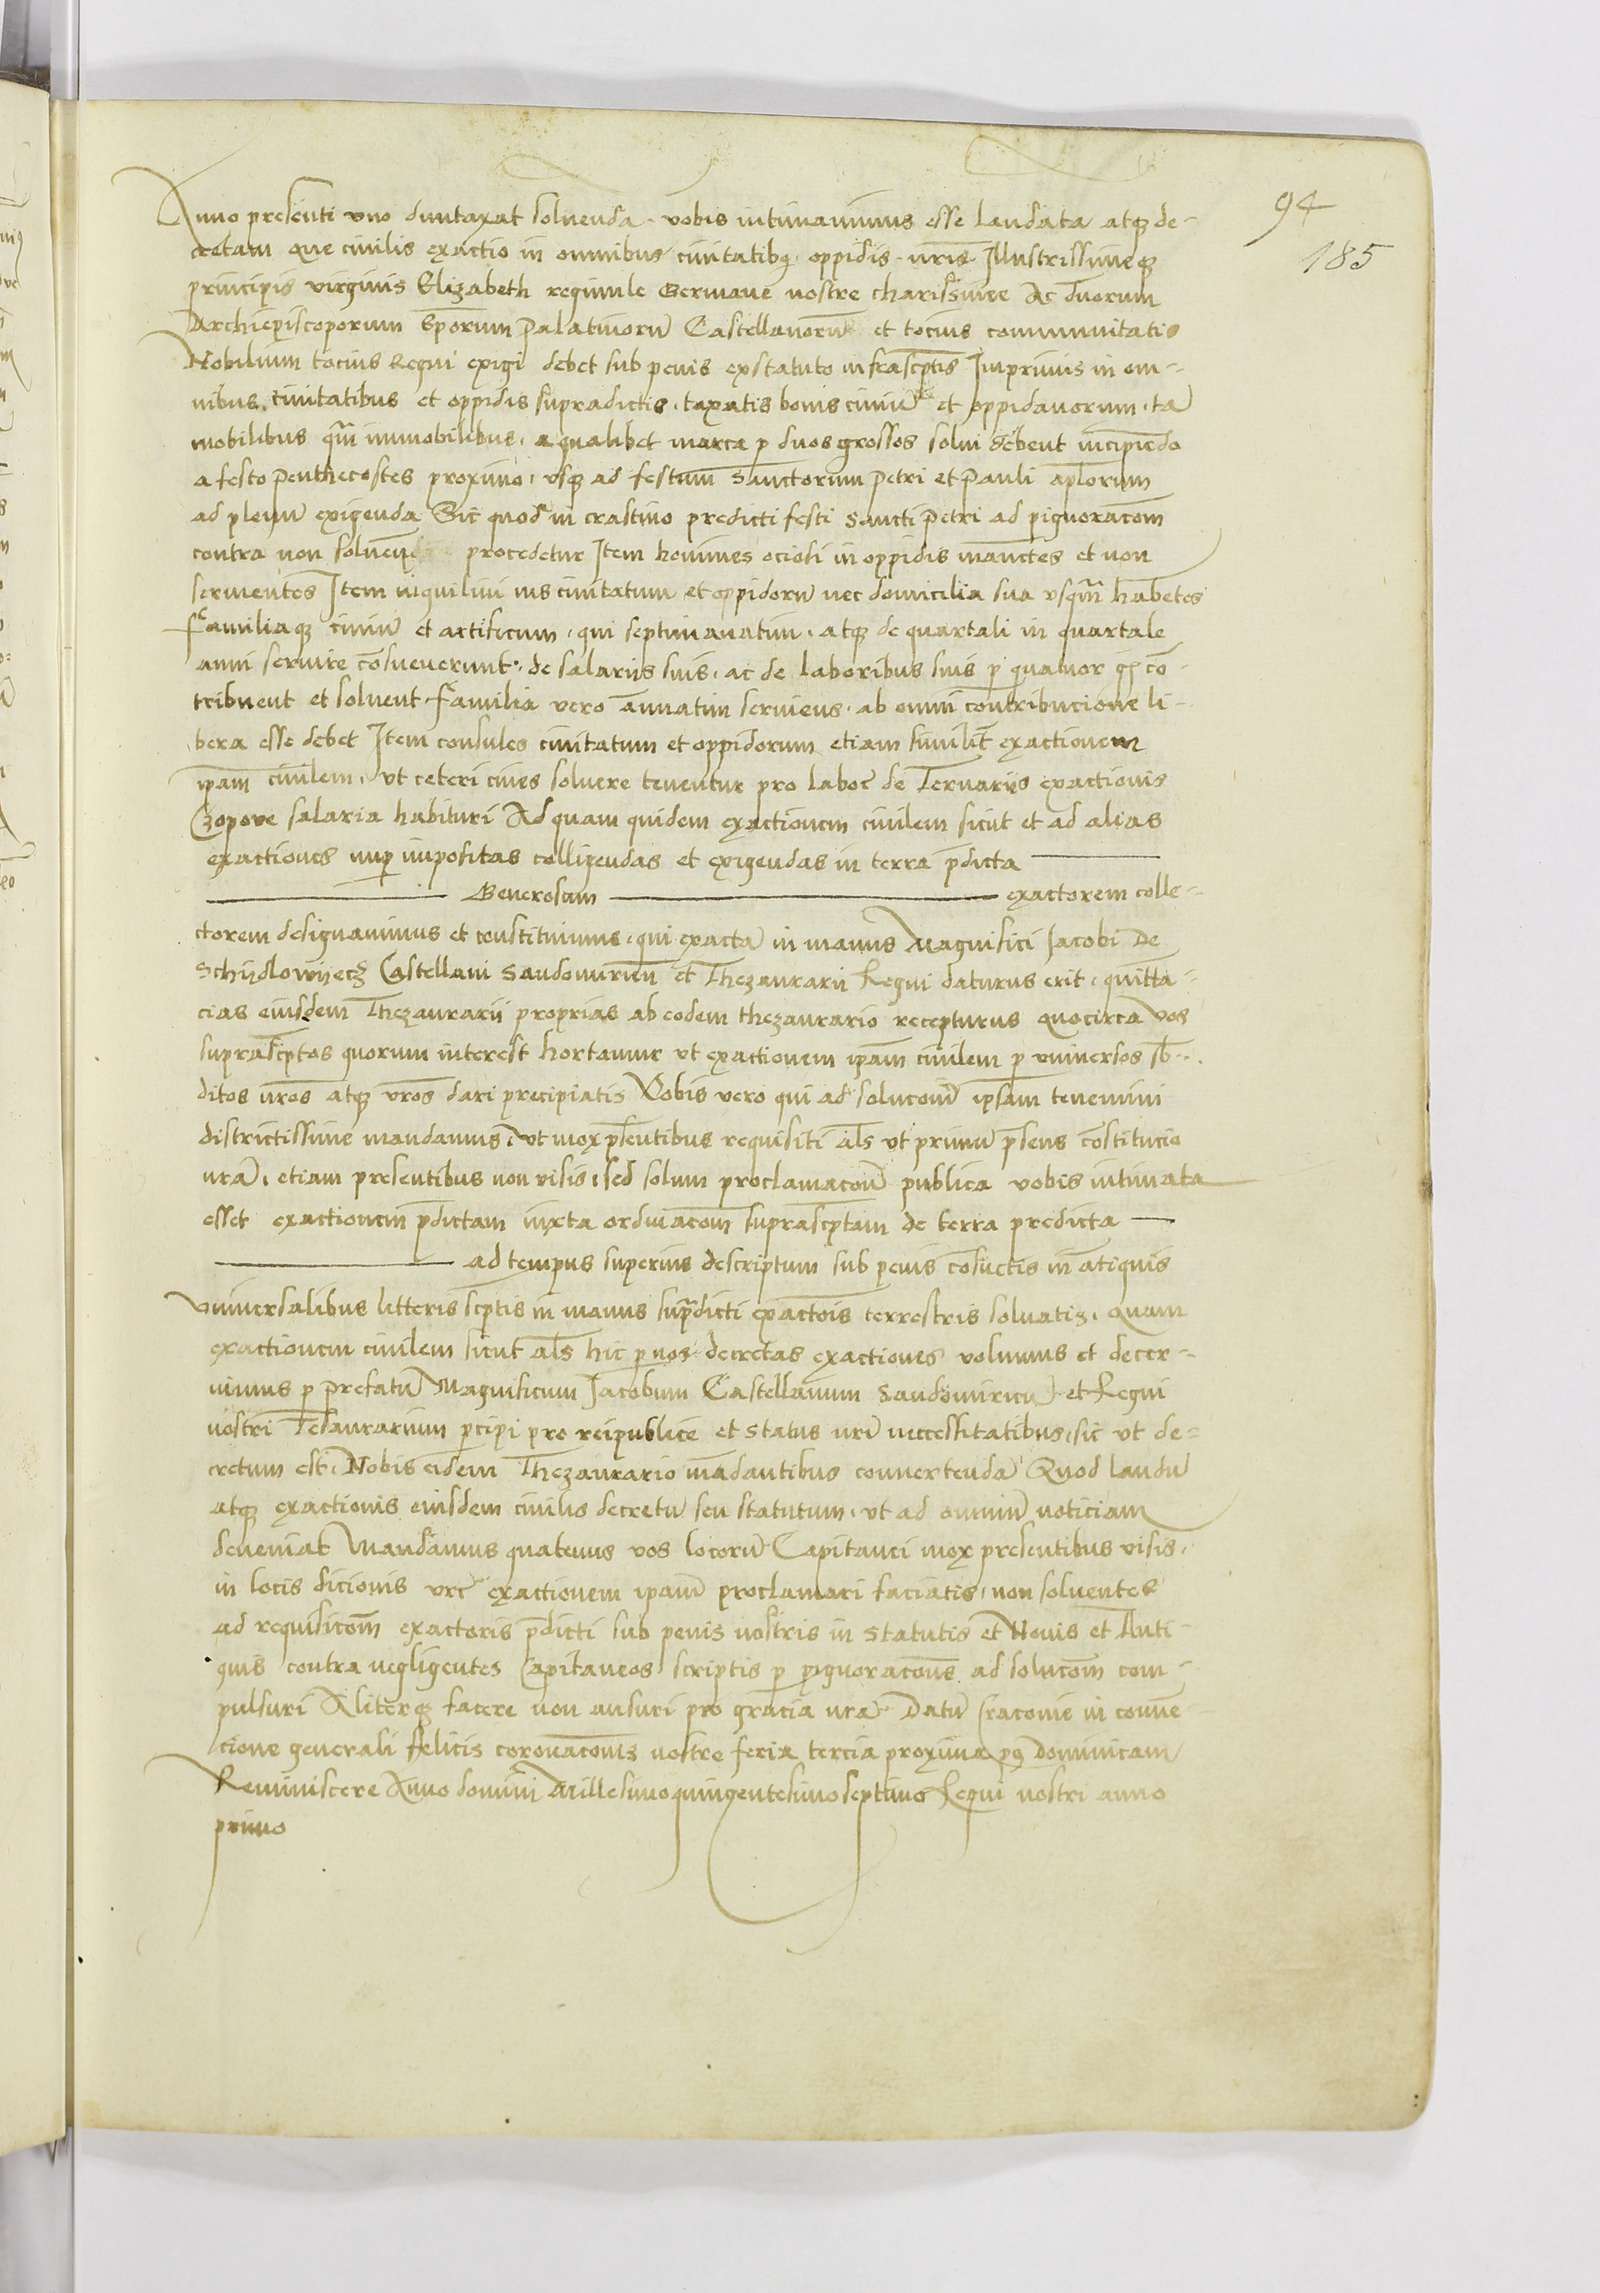 94
185
Anno presenti vno duntaxat soluenda vobis intimauimus esse laudata atq3 de-
cretam que ciuilis exactio in omnibus ciuitatibq oppidis nr̄is Illustrissimeq3
principis virginis Elizabeth reginule Germane nostre charissime Ac duorum
Archiepiscoporum Ep̄orum Palatinorū Castellanorū et tocius communitatis
Nobilium tocius Regni exigi debet sub penis ex statuto infrascp̄tis Imprimis in om-
nibus ciuitatibus et oppidis supradictis, taxatis bonis ciuiū et oppidanorum, tā
mobilibus qm̄ immobilibus, a qualibet marca p duos grossos solui debent incipiēdo
a festo Penthecostes proximo, vsq3 ad festum Sanctorum Petri et Pauli ap̄lorum
ad plenū exigenda Sic quod in crastino predicti festi Sancti Petri ad pignoracōm
contra non soluend procedetur Item homines ociosi in oppidis manētes et non
seruientes Item inquilini ins ciuitatum et oppidorū nec domicilia sua vsqm̄ habētes
Familiaq3 ciuiū et artificum, qui septimanatim, atq3 de quartali in quartale
anni seruire cōsueuerunt, de salariis suis, ac de laboribus suis p quatuor gr̄ cō-
tribuent et soluent Familia vero annatim seruiens, ab omni contribucione li-
bera esse debet Item consules ciuitatum et oppidorum etiam similit̄ exactionem
ip̄am ciuilem, vt ceteri ciues soluere tenentur pro laboē de Ternariis exactionis
Czopove salaria habituri Ad quam quidem exactionem ciuilem sicut et ad alias
exactiones nup impositas colligendas et exigendas in terra p̄dicta
Generosum exactorem colle-
ctorem designauimus et constituimus, qui exactā in manus Magnifici Jacobi De
Schijdlowijecz Castellani Sandomirieñ et Thezaurarii Regni daturus erit, quitta-
cias eiusdem Thezaurarii proprias ab eodem thezaurario recepturus quocirca vos
suprascp̄tos quorum interest hortamur vt exactionem ip̄am ciuilem p vniuersos sb̄-
ditos nr̄os atq3 vr̄os dari precipiatis Vobis vero qui ad solucōm ipsam tenemini
districtissime mandamus, vt mox p̄sentibus requisiti al̄s vt primū p̄sens cōstitucio
nr̄a, etiam presentibus non visis, sed solum proclamacōm publica vobis intimata
esset exactionem p̄dictam iuxta ordinacōm suprascp̄tam de terra predicta
ad tempus superius descriptum sub penis cōsuetis in ātiquis
vniuersalibus litteris scp̄tis in manus sup̄dicti exactois terrestris soluatis, quam
exactionem ciuilem sicut al̄s hic p nos decretas exactiones volumus et decer-
nimus p prefatū Magnificum Jacobum Castellanum Sandomirieñ et Regni
nostri Tesaurarium percipi pro reipublice et status nr̄i neccessitatibus, sic vt de-
cretum est, Nobis eidem Thezaurario mādantibus conuertenda Quod laudū
atq3 exactionis eiusdem ciuilis decretū seu statutum, vt ad omniū noticiam
deueniat Mandamus quatenus vos locorū Capitanei mox presentibus visis,
in locis dicionis vr̄e exactionem ip̄am proclamari faciatis, non soluentes
ad requisicōm exactoris p̄dicti sub penis nostris in statutis et Nouis et Anti-
quis contra negligentes Capitaneos scriptis p pignoracōns ad solucōm com-
pulsuri Aliterq3 facere non ausuri pro gracia nr̄a Datū Cracouie in conuē-
cione generali felicis coronacōnis nostre feria tercia proxima p9 Dominicam
Reminiscere Anno domini Millesimoquingentesimoseptimo Regni nostri anno
primo